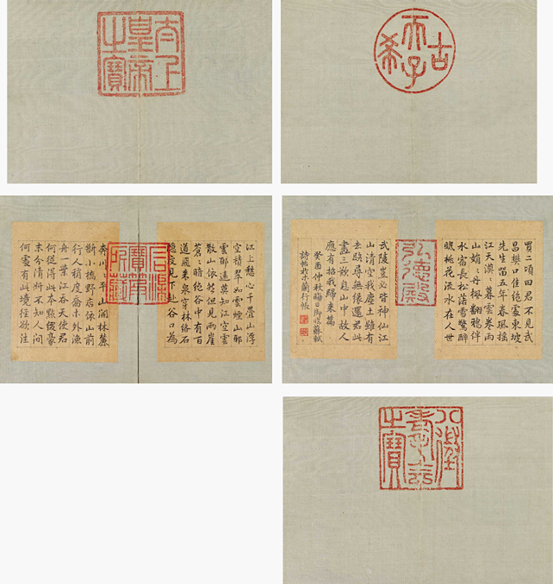 太上皇帝之寶
古希天子
江上愁心千疊山浮
空積翠如雲煙山耶
雲耶遠莫知煙空雲
散山依然但見兩崖
蒼〻暗絶谷中有百
道飛來泉縈林絡石
隱復見下赴谷口為
奔川〻平山開林麓
斷小橋野店依山前
行人稍度喬木外漁
舟一葉江吞天使君
何從得此本點綴豪
末分清妍不知人間
何處有此境徑欲往
置二頃田君不見武
昌樊口佳絶處東坡
先生留五年春風搖
江天漠〻暮雲卷雨
山娟〻丹楓翻鴉伴
水宿長松落雪驚醉
眠桃花流水在人世
武陵豈必皆神仙江
山清空我塵土雖有
去路尋無緣還君此
畫三歎息山中故人
應有招我歸來篇
癸酉仲秋晦日御臨蘇軾
詩帖於木蘭行帳
八徵耄念之寶